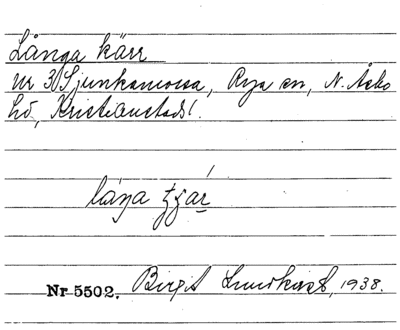 Långa kärr
nr 30 Sjunkamossa, Rya sn, N. Åsbo
hd, Kristianstads l.
låŋa
Nr 5502. Birgit Lundkvist, 1938.